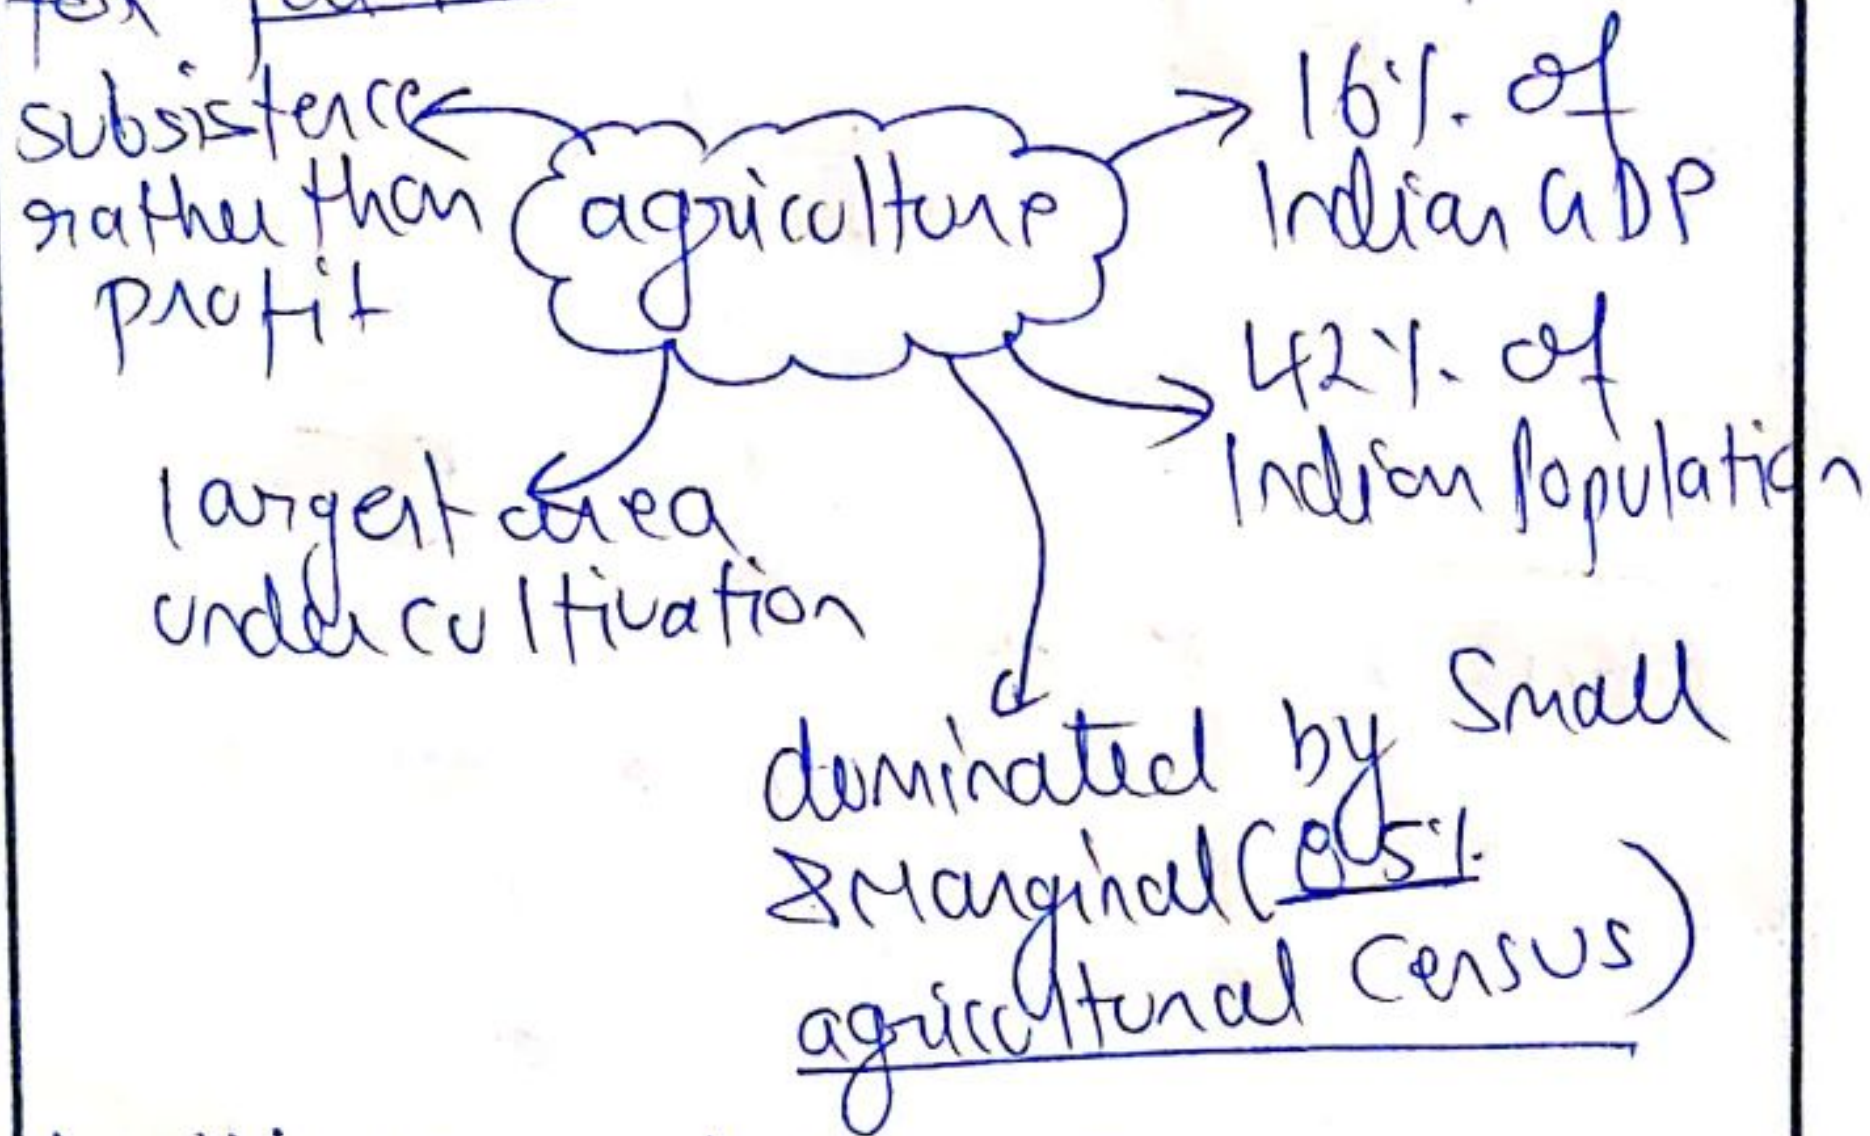 for
subsistence
rather than
profit
agriculture
16% of
Indian GDP
42% of
Indian Population
largest area
under cultivation
dominated by Small
& Marginal (85%
agricultural Census)